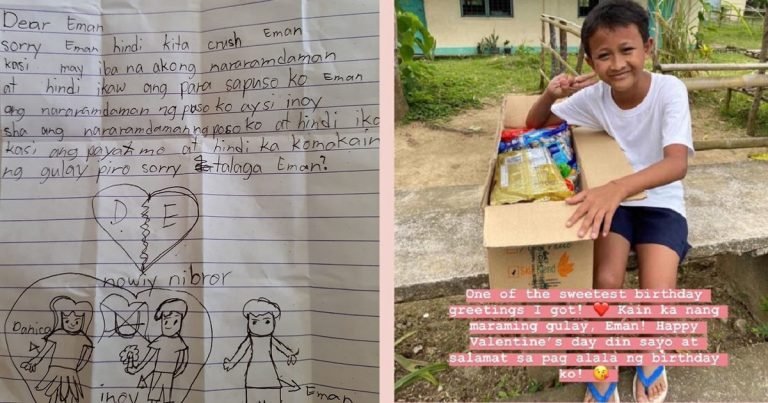 Dear Eman
sorry Eman hindi kita crush Eman
kasi may iba na akong nararamdaman
at hindi ikaw ang para sapuso ko Eman
ang nararamdaman ng puso ko aysi inoy
sha ang nararamdaman ng poso ko at hindi iko
kasi ang payat mo at hindi ka komakain
ng gulay piro sorry talaga Eman?
D E
nowiy nibror
Danica
inoy
Eman
One of the sweetest birthday
greetings I got! ❤️ Kain ka nang
maraming gulay, Eman! Happy
Valentine's day din sayo at
salamat sa pag alala ng birthday
ko! 😘